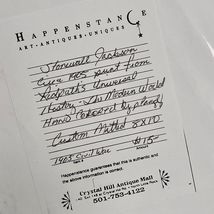 HAPPENSTANCE
ART • ANTIQUES • UNIQUES
Stonewall Jackson
circa 1905 print from
Ridpath's Universal
History - The Modern World
Hand Colored by
Custom Matted 8X10
1905 $15-
Happenstance guarantees that this is authentic and
the above information is correct.
Crystal Hill Antique Mall
501-753-4122